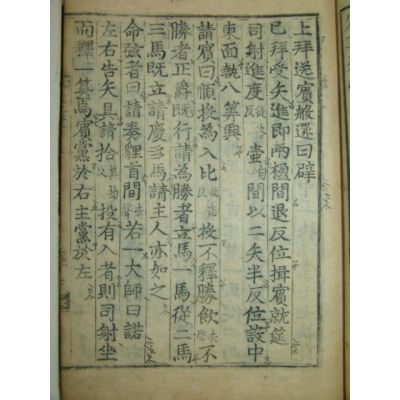 上拜送賓般還曰辟
已拜受矢進即兩楹間退反位揖賓就筵
司射進度徒洛反壺間以二矢半反位設中
東面執八筭興
請賓曰順投為入比毗志反投不釋勝飲去聲不
勝者正爵既行請為勝者立馬一馬從二馬
三馬既立請慶多馬請主人亦如之
命弦者曰請奏貍首間去聲若一大師曰諾
左右告矢具請拾其劫反投有入者則司射坐
而釋一筭焉賓黨於右主黨於左